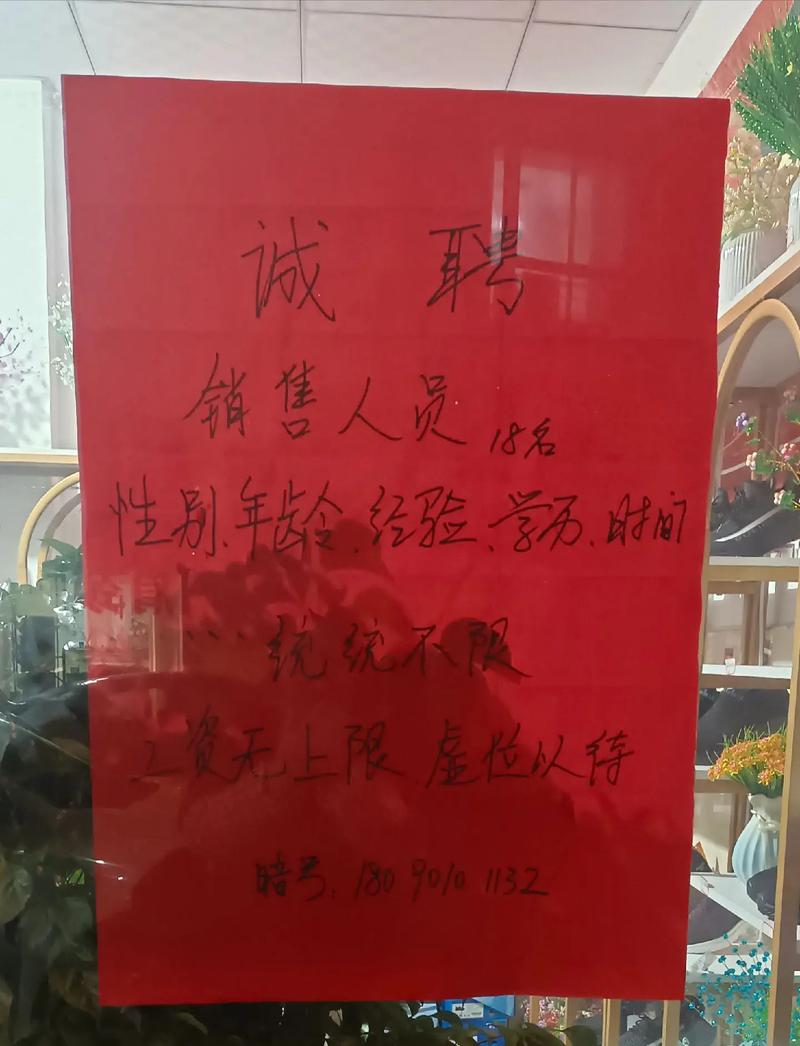 诚 聘
销售人员 18名
性别、年龄、经验、学历、时间
... 统统不限
工资无上限 虚位以待
暗号: 180 9010 1132